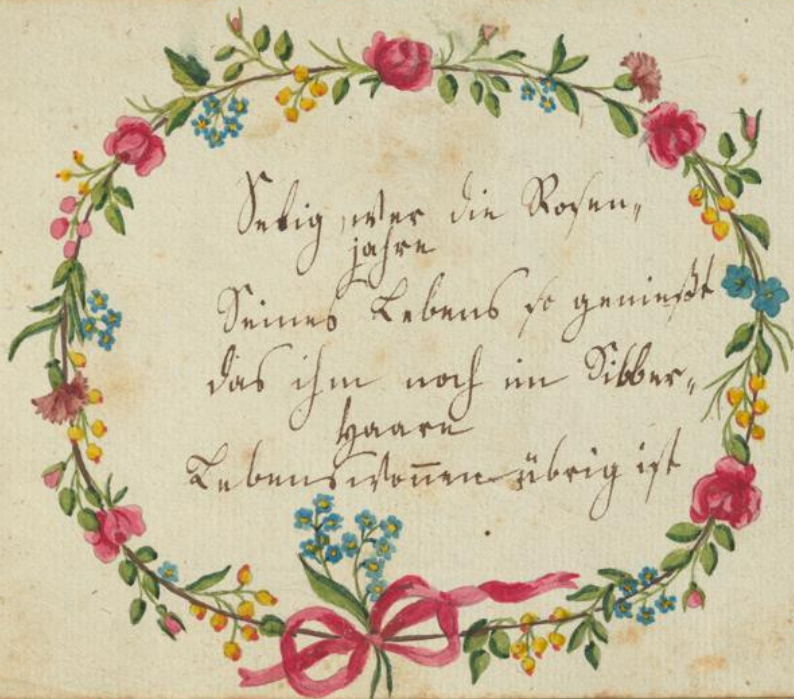 Selig, wer die Rosen„
jahre
Seines Lebens so genießt
das ihm noch im Silber„
haare
Lebenswon̄en übrig ist